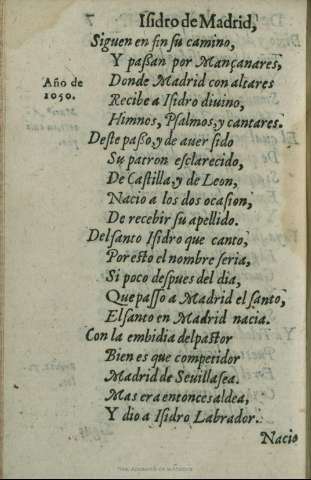 Isidro de Madrid,
Siguen en fin su camino,
Y passan por Mançanares,
Donde Madrid con altares
Año de
1050.
Recibe a Isidro diuino,
Himnos, Psalmos, y cantares.
Deste passo, y de auer sido
Su patron esclarecido,
De Castilla, y de Leon,
Nacio a los dos ocasion,
De recebir su apellido.
Del santo Isidro que canto,
Por esto el nombre seria,
Si poco despues del dia,
Que passo a Madrid el santo,
El santo en Madrid nacia.
Con la embidia del pastor
Bien es que competidor
Madrid de Seuilla sea.
Mas era entonces aldea,
Y dio a Isidro Labrador.
Nacio